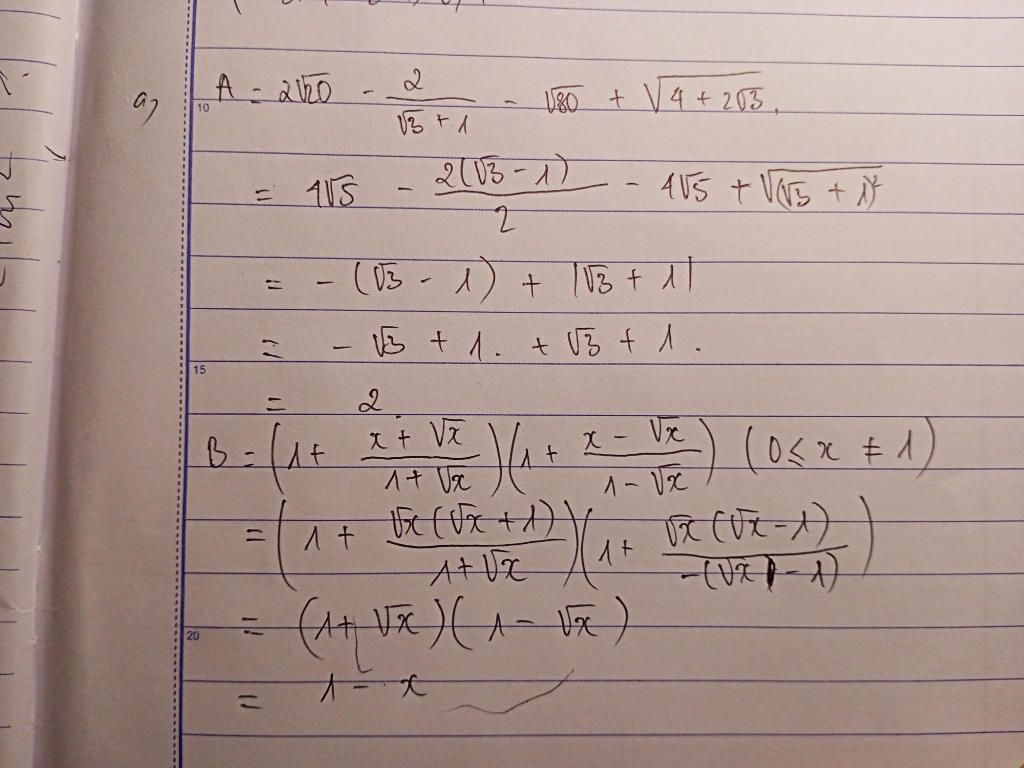 a) A = 2√20 - 2/(√3 + 1) - √80 + √(4 + 2√3).
10
= 4√5 - 2(√3 - 1)/2 - 4√5 + √((√3 + 1)²)
= - (√3 - 1) + |√3 + 1|
= - √3 + 1. + √3 + 1.
15
= 2.
B = (1 + (x + √x)/(1 + √x))(1 + (x - √x)/(1 - √x)) (0 ≤ x ≠ 1)
= (1 + √x(√x + 1)/(1 + √x))(1 + √x(√x - 1)/(-(√x - 1)))
= (1 + √x)(1 - √x)
20
= 1 - x